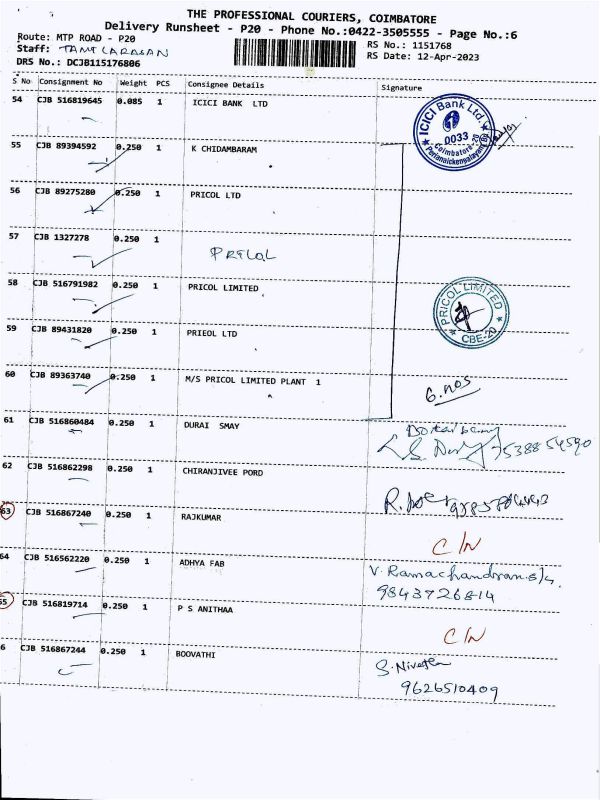 THE PROFESSIONAL COURIERS, COIMBATORE
Delivery Runsheet - P20 - Phone No.:0422-3505555 - Page No.:6
Route: MTP ROAD - P20
RS No.: 1151768
Staff:
RS Date: 12-Apr-2023
DRS No.: DCJB115176806
S No Consignment No Weight PCS Consignee Details Signature
54 CJB 516819645 0.085 1 ICICI BANK LTD
ICICI Bank Ltd. 0033 Coimbatore-20 Perianaickenpalayam
55 CJB 89394592 0.250 1 K CHIDAMBARAM
56 CJB 89275280 0.250 1 PRICOL LTD
57 CJB 1327278 0.250 1 PRICOL
58 CJB 516791982 0.250 1 PRICOL LIMITED
PRICOL LIMITED CBE-20
59 CJB 89431820 0.250 1 PRIEOL LTD
60 CJB 89363740 0.250 1 M/S PRICOL LIMITED PLANT 1
6. nos
61 CJB 516860484 0.250 1 DURAI SMAY
7538854590
62 CJB 516862298 0.250 1 CHIRANJIVEE PORD
63 CJB 516867240 0.250 1 RAJKUMAR C/N
64 CJB 516562220 0.250 1 ADHYA FAB V. Ramachandran
9843726814
65 CJB 516819714 0.250 1 P S ANITHAA C/N
6 CJB 516867244 0.250 1 BOOVATHI S. Nivetha
9626510409